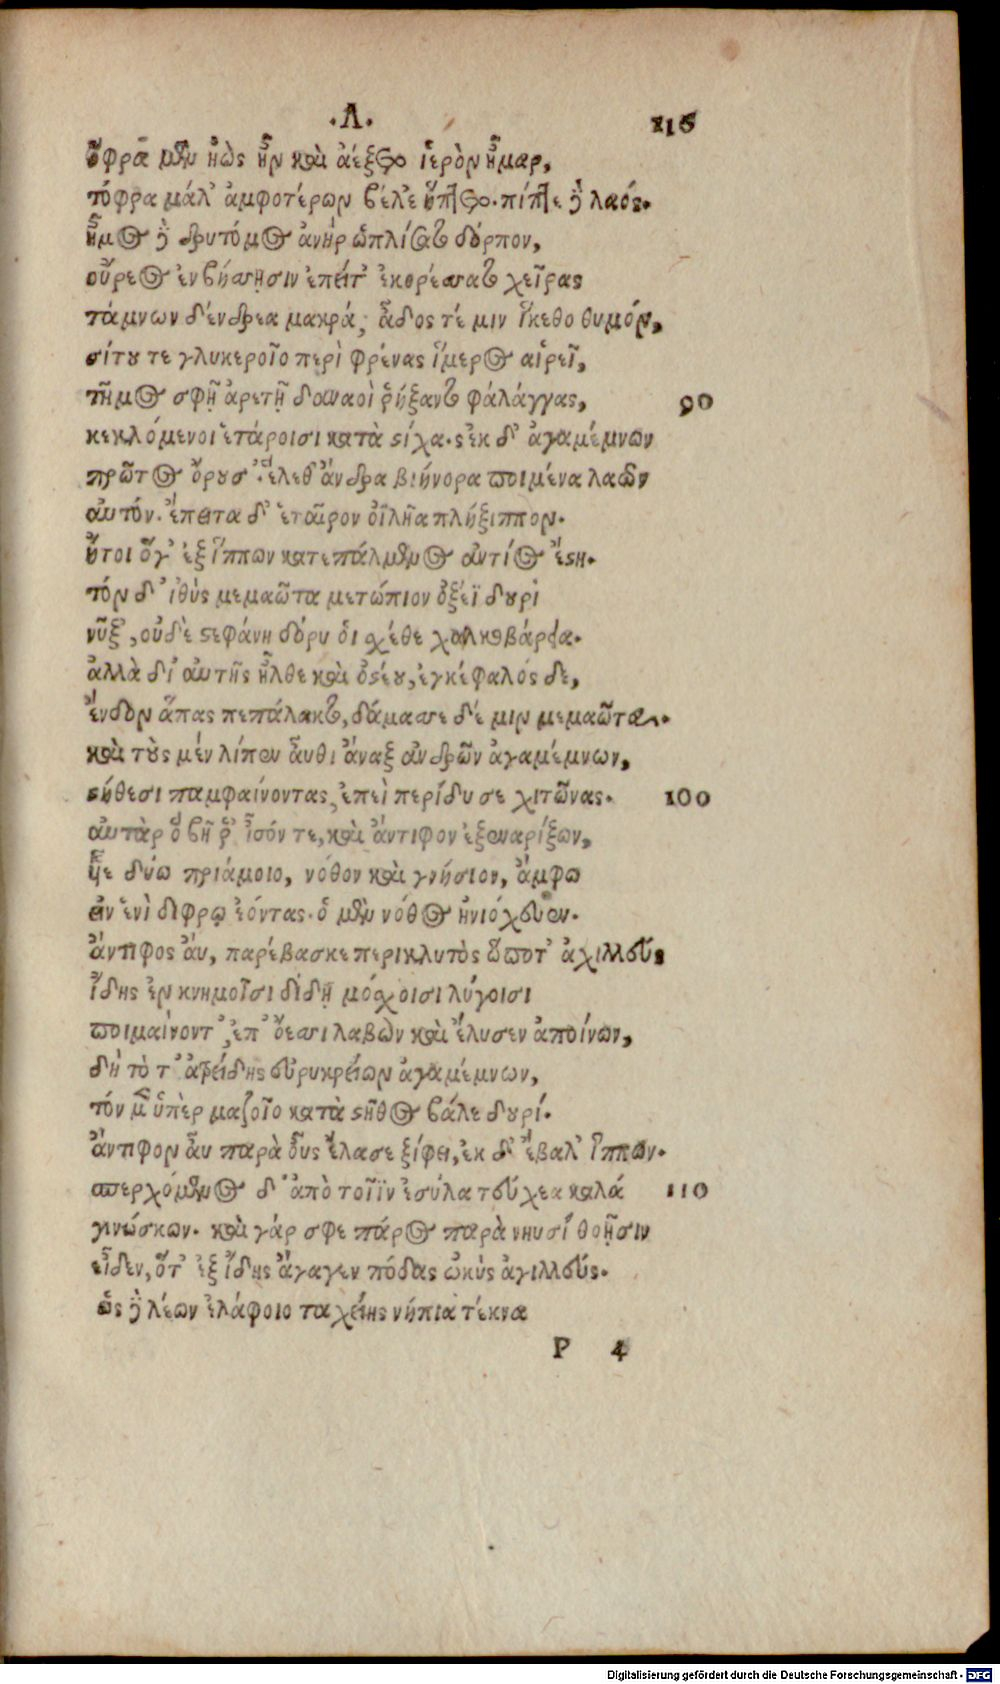 .Λ.
216
ὄφρα μὲν ἠὼς ἦν καὶ ἀέξετο ἱερὸν ἦμαρ,
τόφρα μάλ' ἀμφοτέρων βέλε' ἥπτετο. πίπτε δὲ λαός.
ἦμος δὲ δρυτόμος ἀνὴρ ὡπλίσατο δόρπον,
οὔρεος ἐν βήσσῃσιν ἐπείτ' ἐκορέσσατο χεῖρας
τάμνων δένδρεα μακρά, ἅδος τέ μιν ἵκετο θυμόν,
σίτου τε γλυκεροῖο περὶ φρένας ἵμερος αἱρεῖ,
τῆμος σφῇ ἀρετῇ δαναοὶ ῥήξαντο φάλαγγας,
90
κεκλόμενοι ἑτάροισι κατὰ στίχας. ἐκ δ' ἀγαμέμνων
πρῶτος ὄρουσ'. ἕλε δ' ἄνδρα βιήνορα ποιμένα λαῶν
αὐτόν. ἔπειτα δ' ἑταῖρον ὀϊλῆα πλήξιππον.
ἤτοι ὅγ' ἐξ ἵππων κατεπάλμενος ἀντίος ἔστη.
τὸν δ' ἰθὺς μεμαῶτα μετώπιον ὀξέϊ δουρὶ
νῦξ', οὐδὲ στεφάνη δόρυ οἱ σχέθε χαλκοβάρεια.
ἀλλὰ δι' αὐτῆς ἦλθε καὶ ὀστέου, ἐγκέφαλός δε,
ἔνδον ἅπας πεπάλακτο, δάμασσε δέ μιν μεμαῶτα.
καὶ τοὺς μὲν λίπεν αὖθι ἄναξ ἀνδρῶν ἀγαμέμνων,
στήθεσι παμφαίνοντας, ἐπεὶ περίδυσε χιτῶνας.
100
αὐτὰρ ὁ βῆ ῥ' ἶσόν τε, καὶ ἄντιφον ἐξεναρίξων,
ἧε δύω πριάμοιο, νόθον καὶ γνήσιον, ἄμφω
εἰν ἑνὶ δίφρῳ ἐόντας. ὁ μὲν νόθος ἡνιόχευεν.
ἄντιφος αὖ, παρέβασκε περικλυτὸς ὥ ποτ' ἀχιλλεύς
ἴδης ἐν κνημοῖσι δίδη μόσχοισι λύγοισι
ποιμαίνοντ', ἐπ' ὄεσσι λαβὼν καὶ ἔλυσεν ἀποίνων,
δὴ τότ' ἀτρείδης εὐρυκρείων ἀγαμέμνων,
τὸν μὲν ὑπὲρ μαζοῖο κατὰ στῆθος βάλε δουρί.
ἄντιφον αὖ παρὰ οὖς ἔλασε ξίφει, ἐκ δ' ἔβαλ' ἵππων.
σπερχόμενος δ' ἀπὸ τοῖϊν ἐσύλα τεύχεα καλά
110
γινώσκων. καὶ γάρ σφε πάρος παρὰ νηυσὶ θοῇσιν
εἶδεν, ὅτ' ἐξ ἴδης ἄγαγεν πόδας ὠκὺς ἀχιλλεύς.
ὡς δὲ λέων ἐλάφοιο ταχείης νήπια τέκνα
P 4
Digitalisierung gefördert durch die Deutsche Forschungsgemeinschaft - DFG